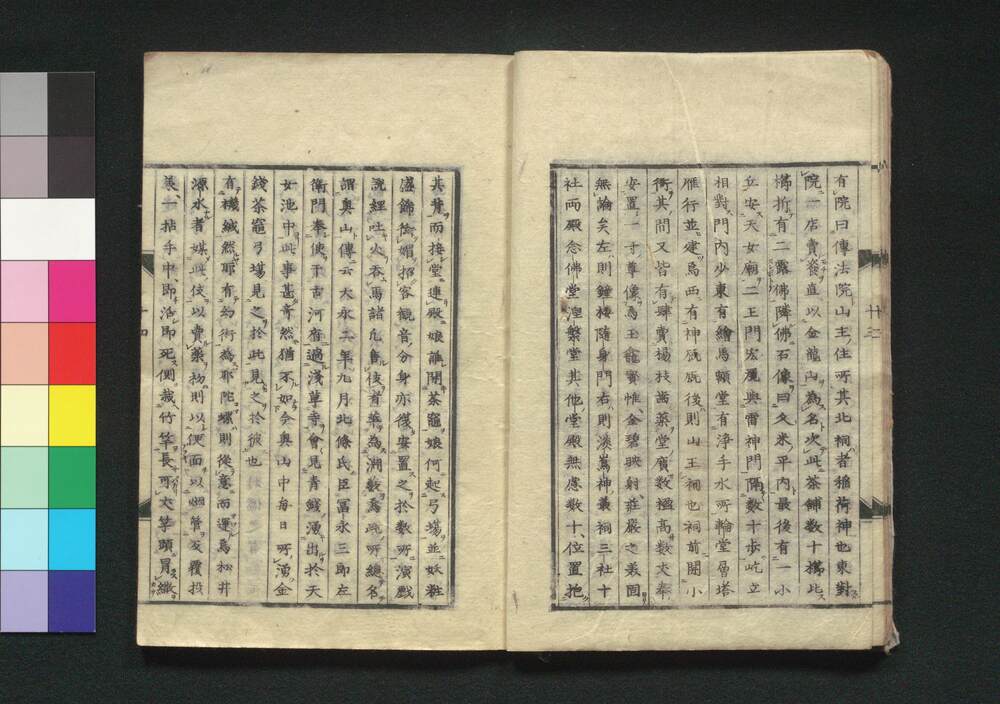 有院曰傳法院山主住所其北祠者稲荷神也東對
院一店賣餈直以金龍山為名次此茶鋪数十撨此
撨折有二露佛隣佛石像曰久米平内最後有一小
丘安天女廟二王門宏麗與雷神門隔数十歩屹立
相對門内少東有繪馬額堂有浄手水所輪堂層塔
雁行並建為西有神瓶瓶後則山王祠也祠前開小
衖其間又皆有肆賣楊枝歯薬堂廣数楹高数丈奉
安置一寸尊像為玉龕寳帷金碧映射荘嚴之美固
無論矣左則鐘楼随身門右則淡嶌神叢祠三社十
社両殿念佛堂涅槃堂其他堂殿無慮数十位置抱
廿三
其背而接堂連殿娘誰開茶竈娘何起弓場並妖粧
盛飾倚媚招客観音分身亦復安置之於数所演戯
説經吐火呑馬諸凡售伎有業為淵数為此所總名
謂奥山傳云大永二年九月北條氏臣冨永三郎左
衛門奉使于古河府過淺草寺會見青銭湧出於天
女池中此事甚奇然猶不如今奥山中毎日所湧金
錢茶竈弓場見之於此見之於彼也
有襪緘然耶有幻術為耶陀螺則從意而運為松井
源水者媒此伎以賣薬物則以便面以烟管反覆投
表一拈手中即活即死便裁竹竿長可丈竿頭冐繳
十四